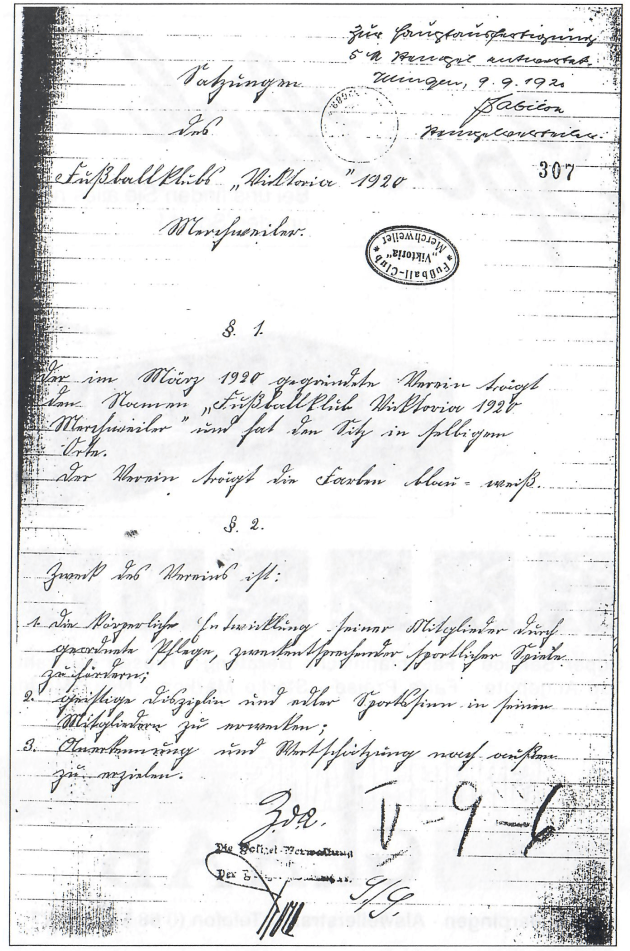 Zur Hauptausfertigung
Illingen, 9.9.192
Satzungen
des
307
Fußballklubs „Viktoria" 1920
Merchweiler.
* Fußball-Club * „Viktoria" Merchweiler
§. 1.
Der im März 1920 gegründete Verein trägt
den Namen „Fußballklub Viktoria 1920
Merchweiler" und hat den Sitz in selbigem
Orte.
Der Verein trägt die Farben blau = weiß.
§. 2.
Zweck des Vereins ist:
1. Die körperliche Entwicklung seiner Mitglieder durch
geordnete Pflege, zweckentsprechender sportlicher Spiele
zu fördern;
2. geistige Disziplin und edler Sportssinn in seinen
Mitgliedern zu erwecken;
3. Anerkennung und Wertschätzung nach außen
zu erzielen.
Z.d.A.
V-9-6
Die Polizei-Verwaltung
Der
9/9